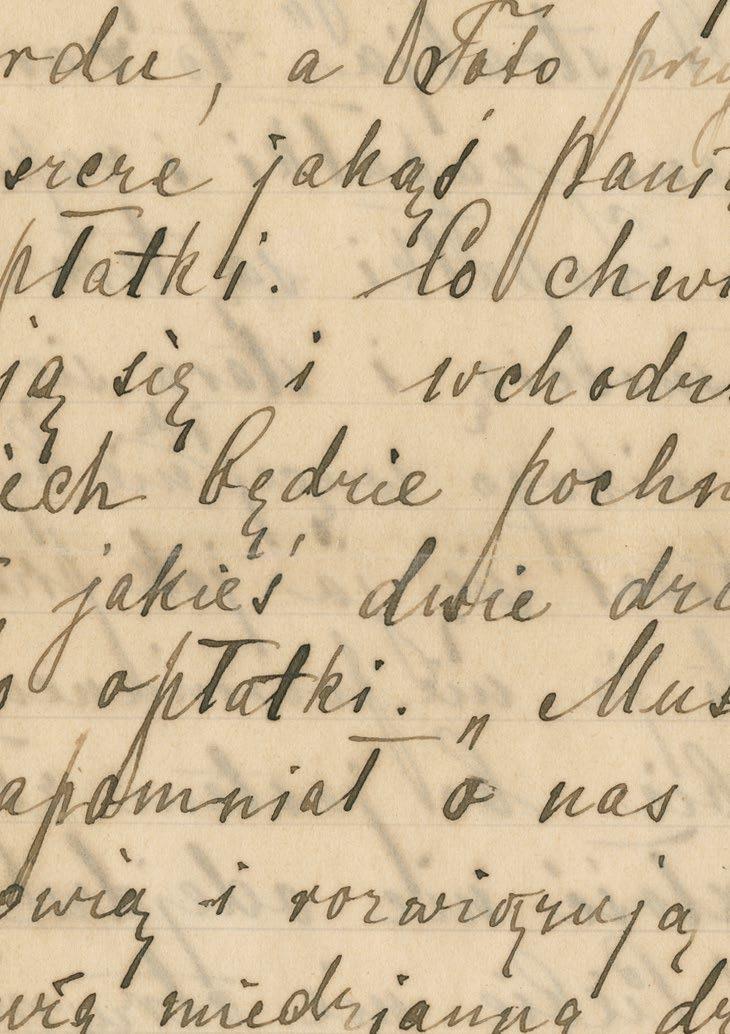 rdu, a
szcze jakąś pani
płatki. Co chwi
ją się i wchodz
iech będzie pochw
jakieś dwie dro
o opłatki. „Mus
apomniał o nas
owią i rozwiązują
wią miedzianną dr